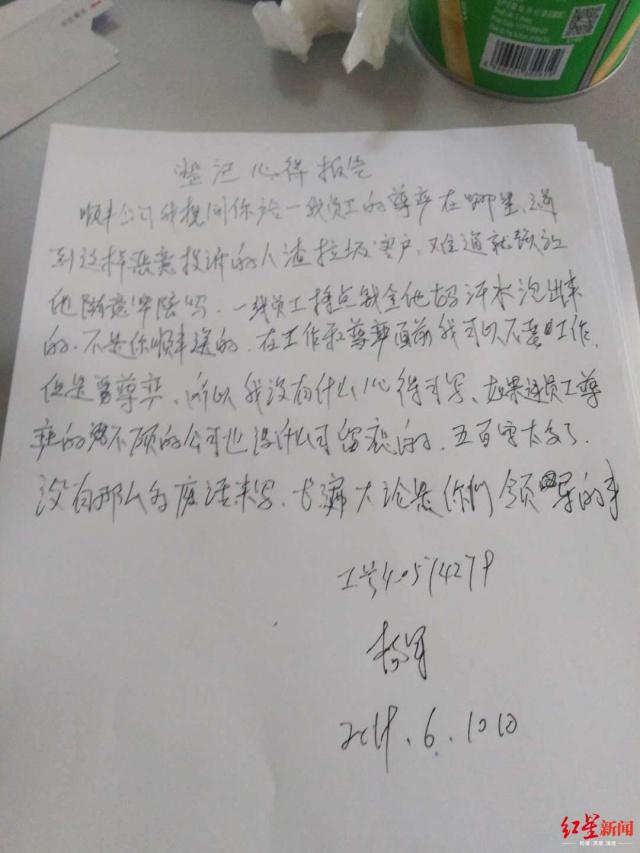 登记心得报告
顺丰公司我想问你给一线员工的尊严在哪里，遇
到这样恶意投诉的人渣垃圾客户，难道就该让
他随意牢陪吗，一线员工挣点钱全他妈汗水泡出来
的，不是你顺丰送的，在工作和尊严面前我可以不要工作，
但是要尊严，所以我没有什么心得可写，如果连员工尊
严的都不顾的公司也没什么可留恋的，五百字太多了，
没有那么多废话来写，长篇大论是你们领导的事
工号40574279
杨军
2019.6.10日
红星新闻